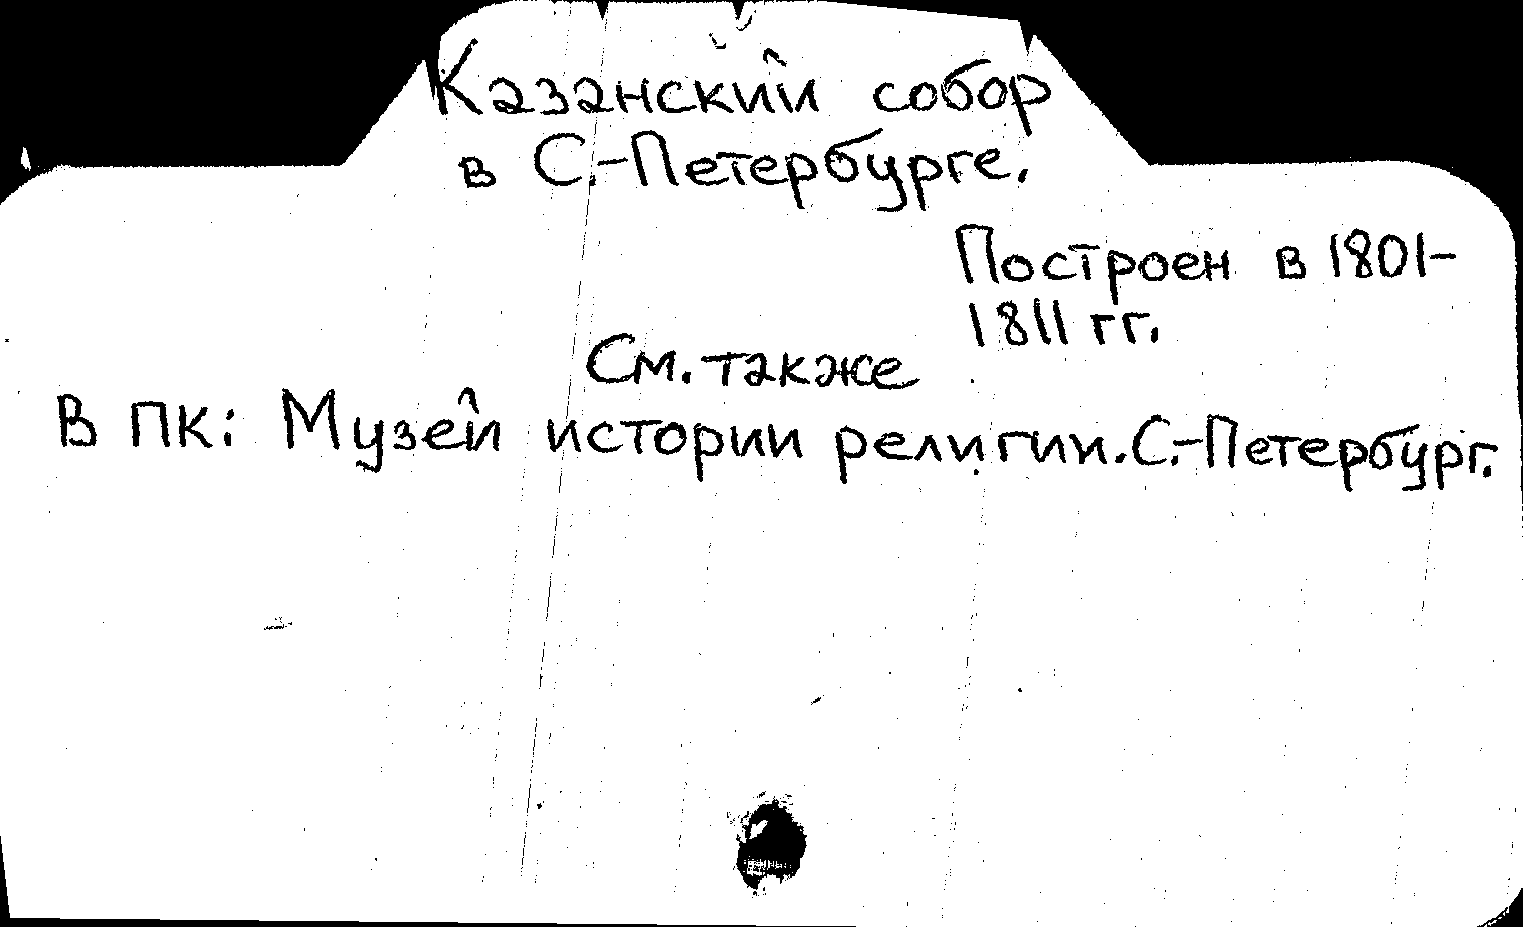 Казанский собор
в С.-Петербурге.
Построен в 1801-
1811 гг.
См. также
В ПК: Музей истории религии. С.-Петербург.